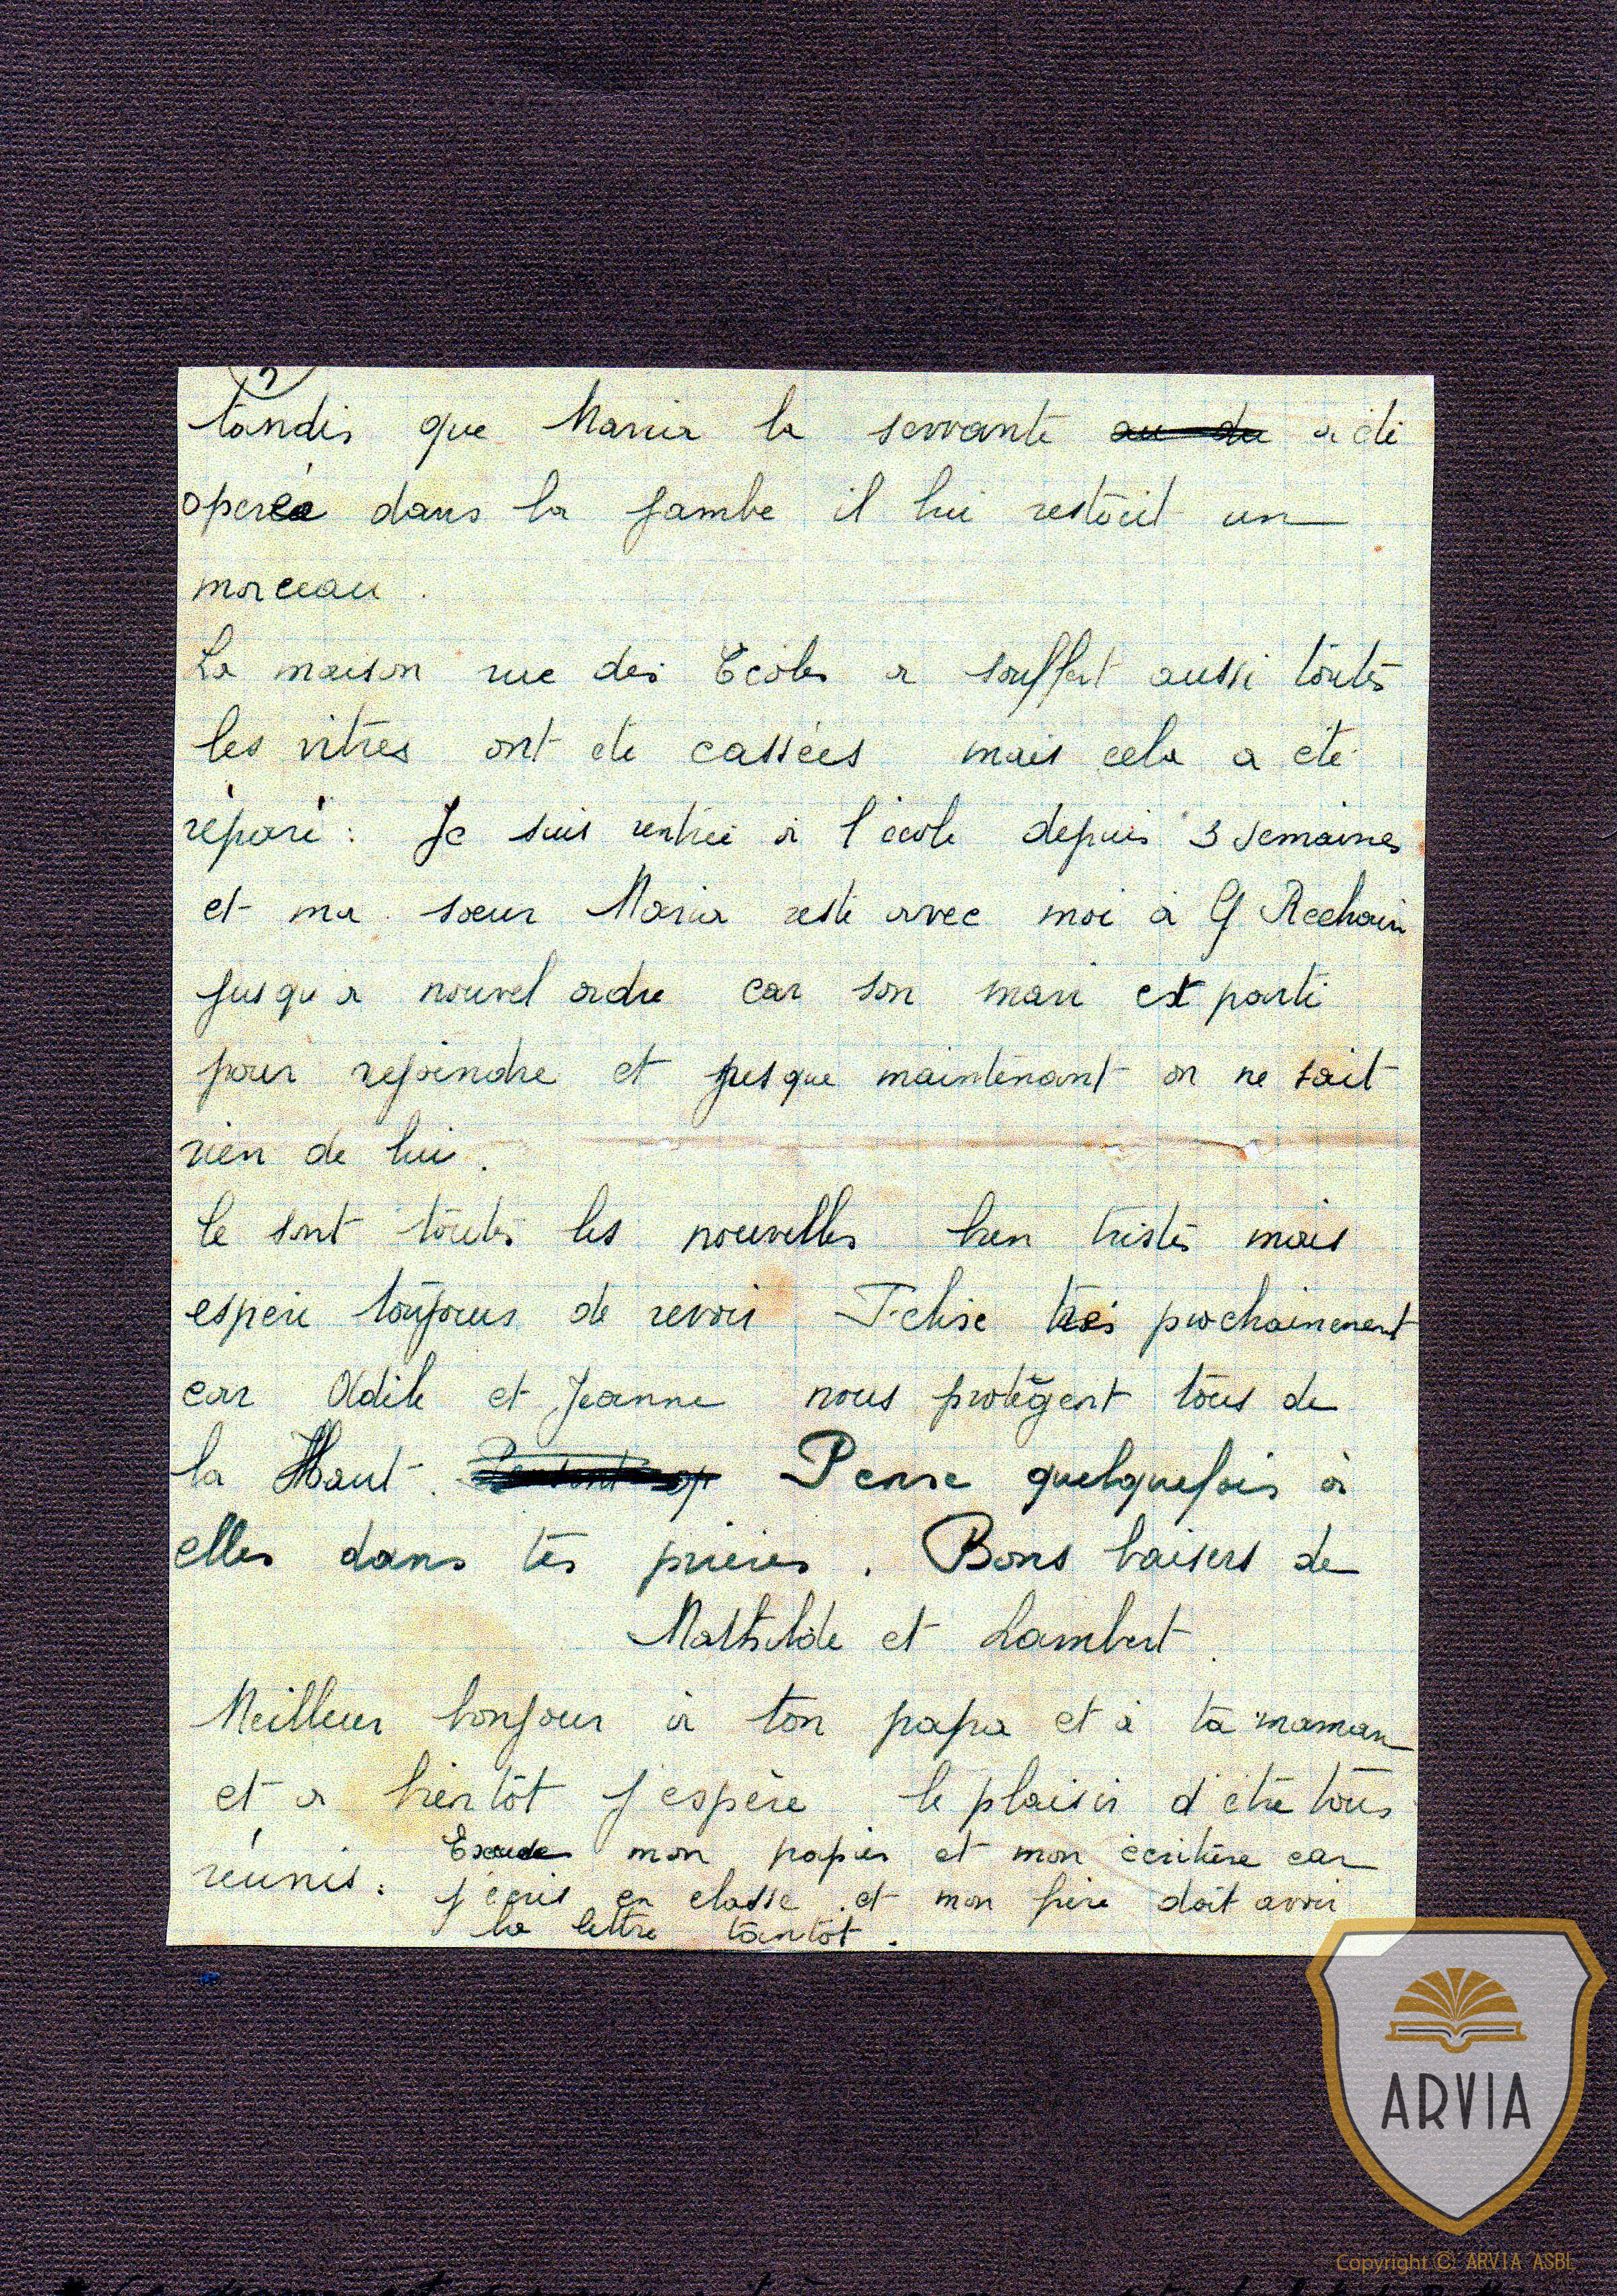 tandis que Maria la servante au du a été
operée dans la jambe il lui restait un
morceau.
La maison rue des Ecoles a souffert aussi toutes
les vitres ont été cassées mais cela a été
réparé. Je suis rentrée à l'école depuis 3 semaines
et ma soeur Maria reste avec moi à G Rechain
jusqu'a nouvel ordre car son mari est parti
pour rejoindre et jusque maintenant on ne sait
rien de lui.
Ce sont toutes les nouvelles bien tristes mais
espère toujours de revoir très prochainement
car Odile et Jeanne nous protègent tous de
la Haut. Pense quelquefois à
elles dans tes prières. Bons baisers de
Mathilde et Lambert.
Meilleur bonjour à ton papa et à ta maman
et a bientôt j'espère le plaisir d'être tous
réunis. Excuse mon papier et mon écriture car
j'écris en classe et mon frère doit avoir
la lettre tantôt.
ARVIA
Copyright © ARVIA ASBL